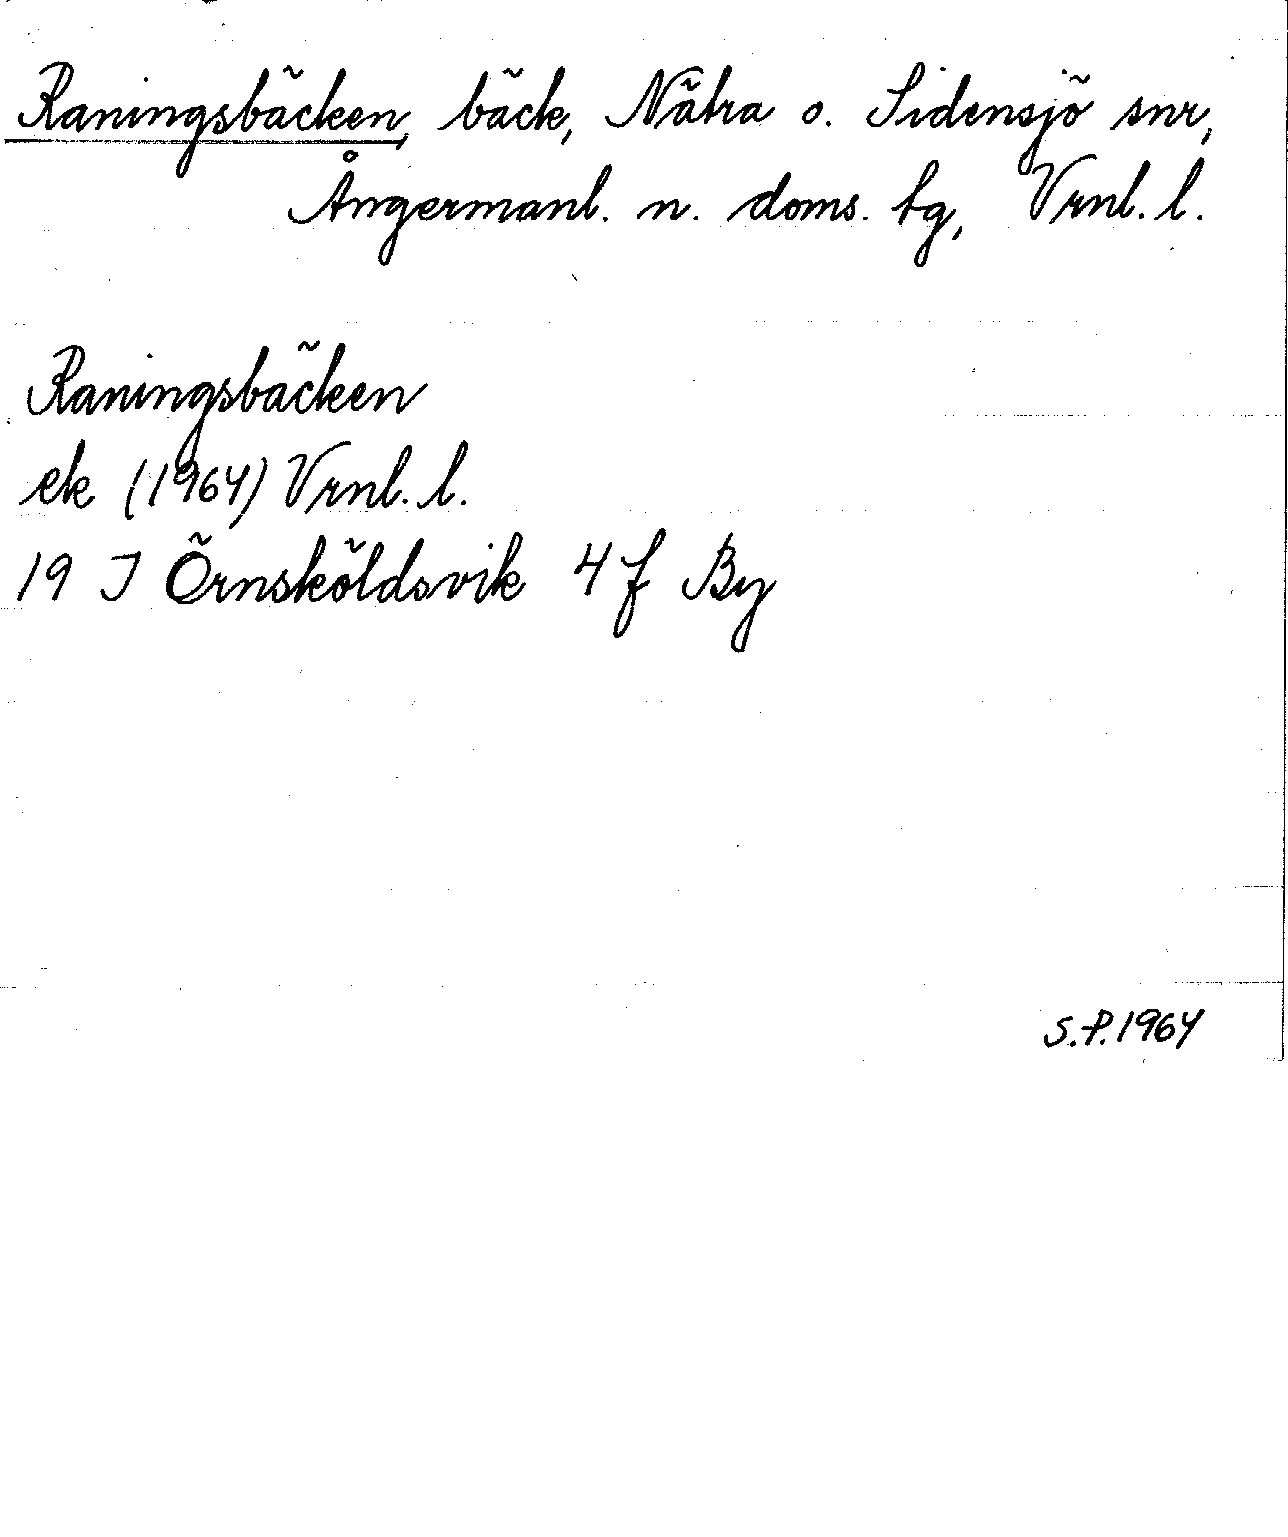 Raningsbäcken, bäck, Nätra o. Sidensjö snr,
Ångermanl. n. doms. tg, Vrnl. l.
Raningsbäcken
ek (1964) Vrnl. l.
19 J Örnsköldsvik 4 f By
S.P. 1964